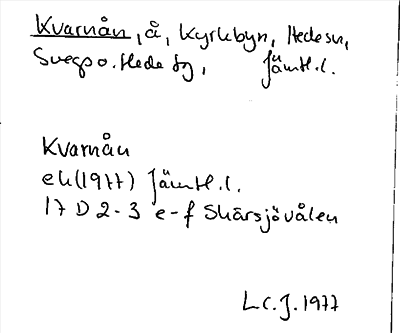 Kvarnån, å, Kyrkbyn, Hede sn,
Svegs o. Hede tg, Jämtl.l.
Kvarnån
ek(1977) Jämtl.l.
17 D 2-3 e-f Skärsjövålen
L.C.J. 1977